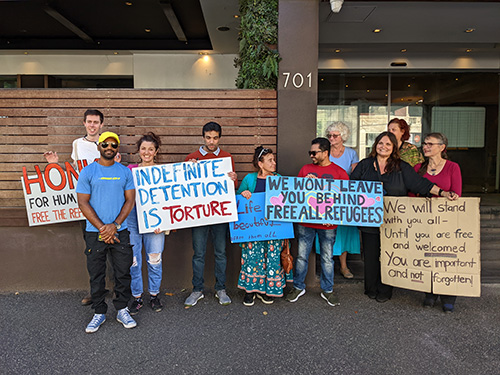 701
HON
FOR HUM
FREE THE REF
INDEFINITE
DETENTION
IS TORTURE
Life
beautiful
WE WON'T LEAVE
YOU BEHIND
FREE ALL REFUGEES
We will stand
with you all-
Until you are free
and welcomed
You are important
and not forgotten!